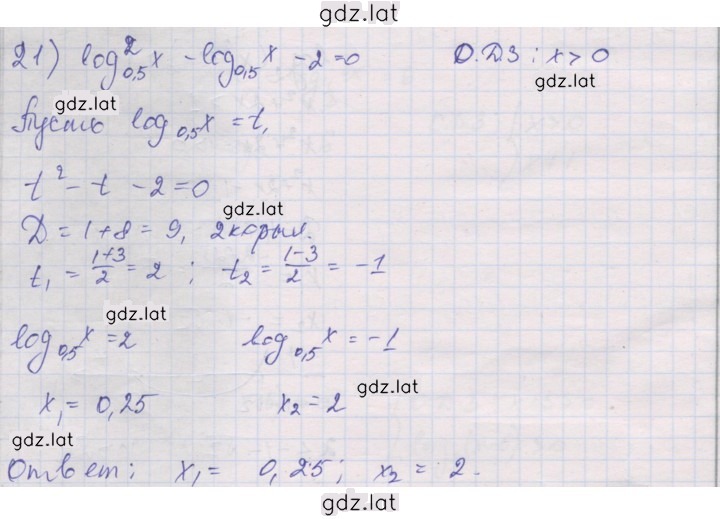 gdz.lat
21) log²₀,₅x - log₀,₅x - 2 = 0 О.Д.З: x > 0
gdz.lat
gdz.lat
Пусть log₀,₅x = t,
t² - t - 2 = 0
gdz.lat
Д = 1 + 8 = 9, 2 корня.
t₁ = (1+3)/2 = 2 ; t₂ = (1-3)/2 = -1
gdz.lat
log₀,₅x = 2 log₀,₅x = -1
gdz.lat
x₁ = 0,25 x₂ = 2
gdz.lat
Ответ: x₁ = 0,25; x₂ = 2.
gdz.lat